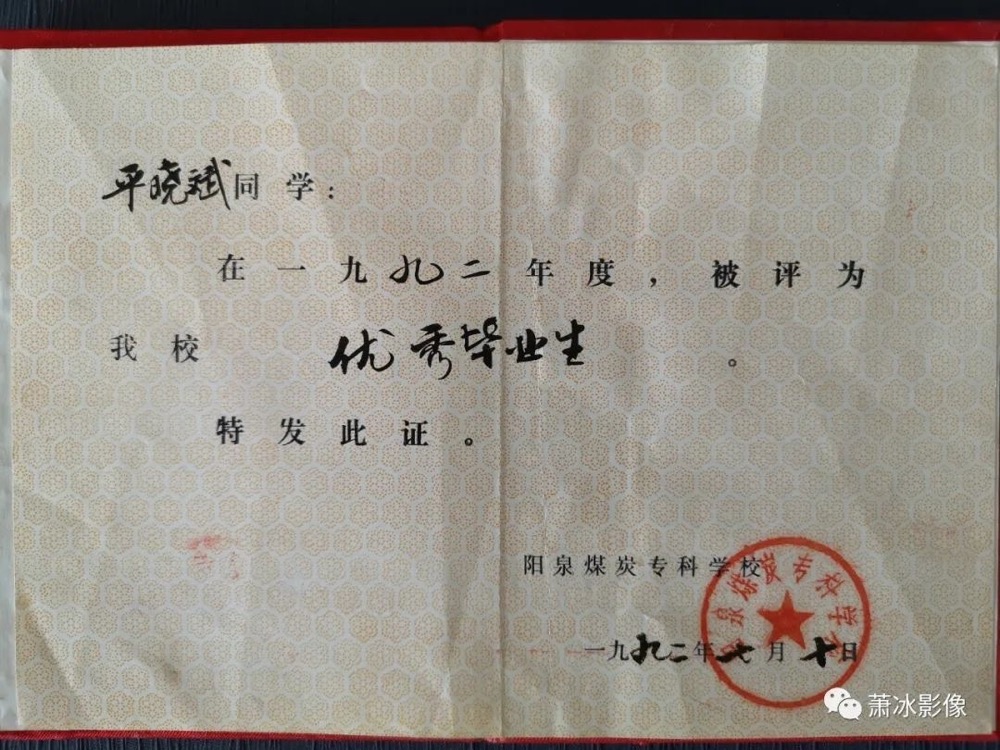 平晓斌同学：
在一九九二年度，被评为
我校 优秀毕业生 。
特发此证。
阳泉煤炭专科学校
阳泉煤炭专科学校
一九九二年七月十日
萧冰影像